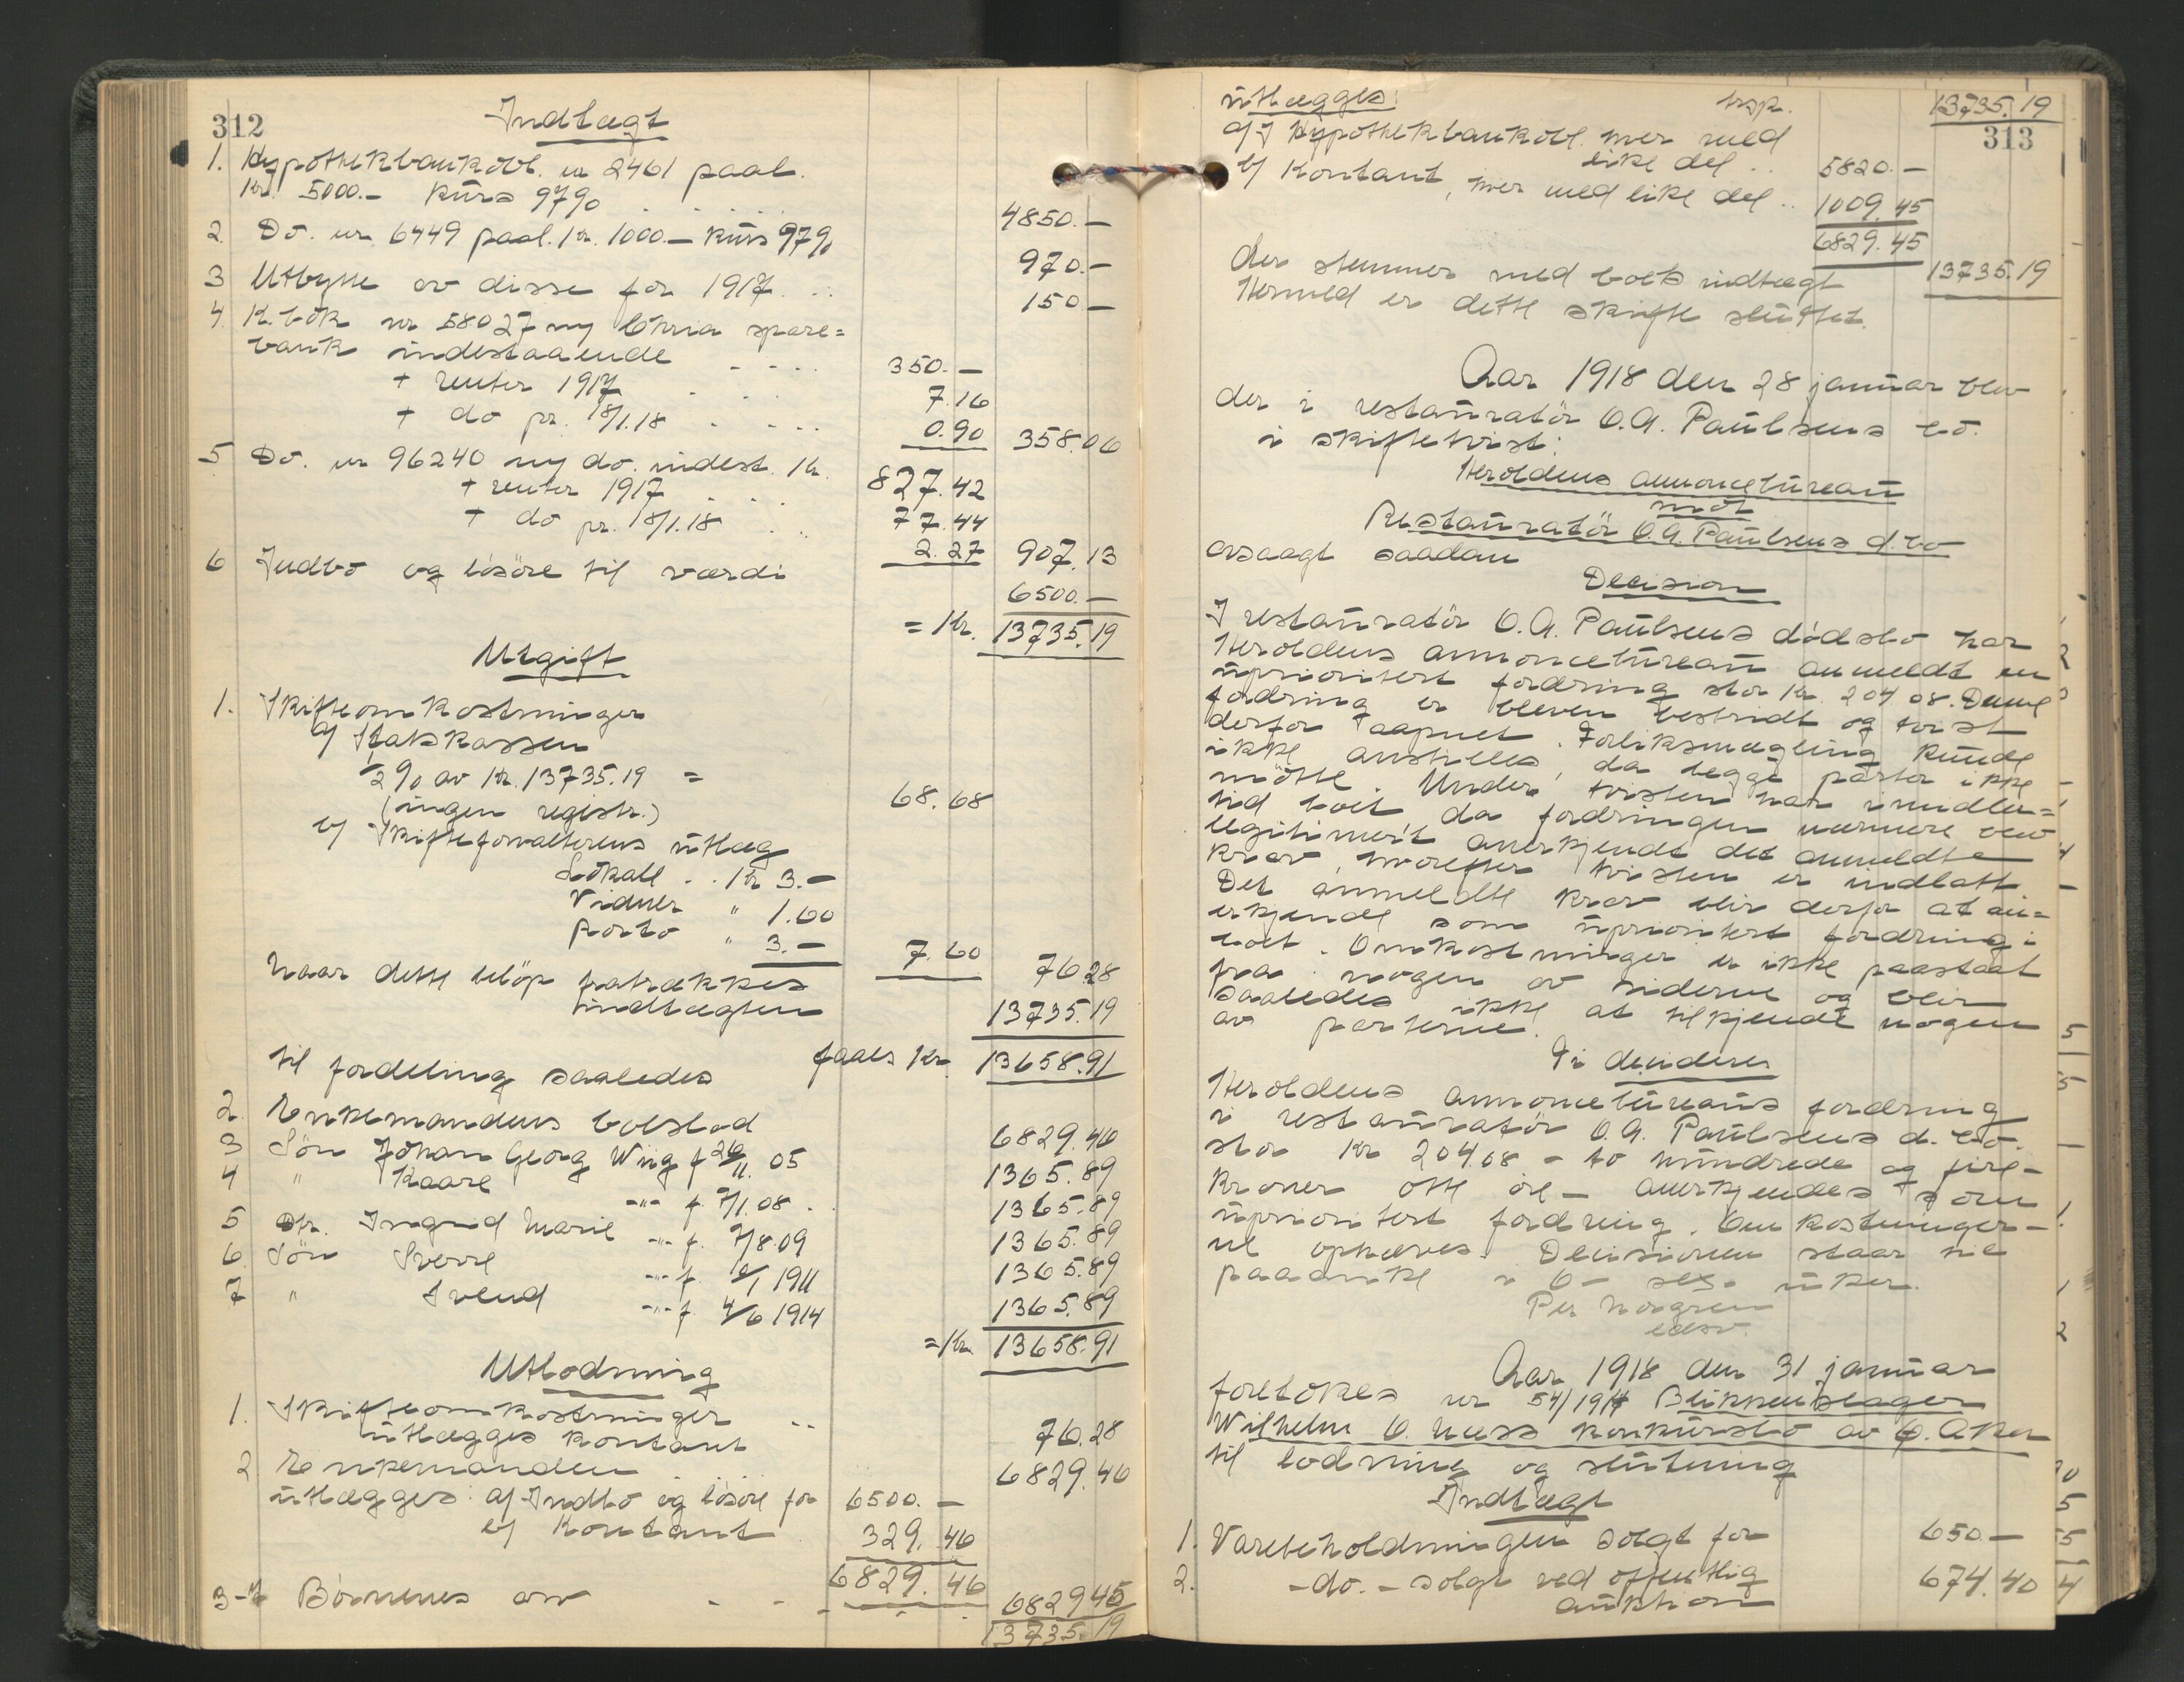 312
Indtægt
1. Hypothekbankobl. nr 2461 paal.
Kr. 5000.- Kurs 97% . . . . . 4850.-
2. Do. nr. 6449 paal. Kr. 1000.- Kurs 97% 970.-
3 Utbytte av disse for 1917 . . . 150 -
4. K. bok nr 58027 ny C'nia spare=
bank indestaaende . . . . 350.-
+ renter 1917 . . . 7.16
+ do pr. 18/1.18 . . . . 0.90 358.06
5 Do. nr 96240 ny do. indest. Kr. 827.42
+ renter 1917 . . . 77.44
+ do pr. 18/1.18 . . 2.27 907.13
6 Indbo og løsøre til værdi 6500.-
= Kr. 13735.19
Utgift
1. Skifteomkostninger
a/ Statskassen
1/2 % av Kr. 13735.19 = 68.68
(ingen registr.)
b/ Skifteforvalterens utlæg
Lokale . . Kr 3.-
Vidner " 1.60
Porto " 3.- 7.60 76.28
Naar dette beløp fratrækkes
indtægten 13735.19
faaes Kr. 13658.91
til fordeling saaledes
2. Enkemandens boeslod 6829.46
3 Søn Johan Georg Wiig f 26/11.05 1365.89
4 " Kaare -"- f. 7/1.08 . 1365.89
5 Dtr. Ingrid Marie -"- f. 7/8.09 1365.89
6. Søn Sverre -"- f. 2/1 1911 1365.89
7 " Svend -"- f. 4/6 1914 1365.89
= Kr. 13658.91
Utlodning
1. Skifteomkostninger . .
utlægges kontant 76.28
2. Enkemanden 6829.46
utlægges: a/ Indbo og løsøre for 6500.-
b/ Kontant . 329.46
6829.46
3-7 Børnenes arv . . . . . 6829.45
13735.19
utlægges: trsp. 13735.19
313
a/ I Hypothekbankobl. hver med
like del . . 5820.-
b/ Kontant, hver med like del . . 1009.45
6829.45
der stemmer med boets indtægt 13735.19
Hermed er dette skifte sluttet.
Aar 1918 den 28 januar blev
der i restauratør O.A. Paulsens bo.
i skiftetvist:
Heroldens annoncebureau
mot
Restauratør O.A. Paulsens d.bo
avsagt saadan
Decision
I restauratør O.A. Paulsens dødsbo har
Heroldens annoncebureau anmeldt en
uprioritert fordring stor Kr. 204.08. Denne
fordring er bleven bestridt og tvist
derfor aapnet. Forliksmægling kunde
ikke anstilles, da begge parter ikke
møtte. Under tvisten har imidler=
tid boet da fordringen nærmere blev
legitimert anerkjendt det anmeldte
krav, hvorefter tvisten er indlatt.
Det anmeldte krav blir derfor at an=
erkjende som uprioritert fordring i
boet. Omkostninger er ikke paastaat
fra nogen av siderne og blir
saaledes ikke at tilkjende nogen
av parterne.
Ti decideres
Heroldens annoncebureaus fordring
i restauratør O.A. Paulsens d. bo.
stor Kr 204.08 - to hundrede og fire -
kroner otte øre - anerkjendes som
uprioritert fordring. Omkostninger-
ne ophæves. Decisionen staar til
paaanke i 6 - seks - uker.
Per Norgren
edsv.
Aar 1918 den 31 januar
foretokes nr 54/1914 Blikkenslager
Wilhelm O. Næss konkursbo av Ø. Aker
til lodning og slutning
Indtægt
1. Varebeholdningen solgt for 650.-
2. -do.- solgt ved offentlig
auktion 674.40